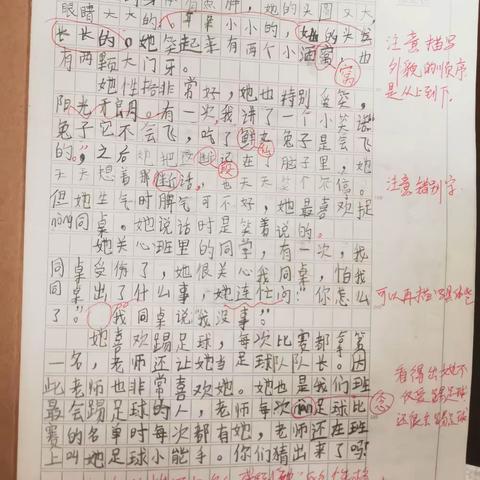 眼睛大大的
小小的，她的头发也
长长的。她笑起来有两个小酒窝也
有两颗大门牙。
她性格非常好，她也特别爱笑，
阳光开朗。有一次，我讲了一个小笑话
兔子它不会飞，吃了鲜丸兔子是会飞
的，”之后 还在 脑子里，她
天天想着那 话， 天天笑个不停。
但她生气时脾气可不好，她最喜欢捉
同桌。她说话时是笑着说的。
她关心班里的同学，有一次，我
同桌受伤了，她很关心我同桌，怕我
同桌出了什么事，她连忙问：“你怎么
了。”我同桌说“我没事”。
她喜欢踢足球，每次比赛都拿第
一名，老师还让她当足球队队长。因
此老师也非常喜欢她。她也是我们班
最会踢足球的人，老师每次 足球比
赛的名单时每次都有她，老师还在班
上叫她足球小能手。你们猜出来了吗？
窝
仙
段
念
注意描写
外貌的顺序
是从上到下。
注意错别字
可以再描写具体些
看得出她不
仅爱踢足球
还很会踢足球